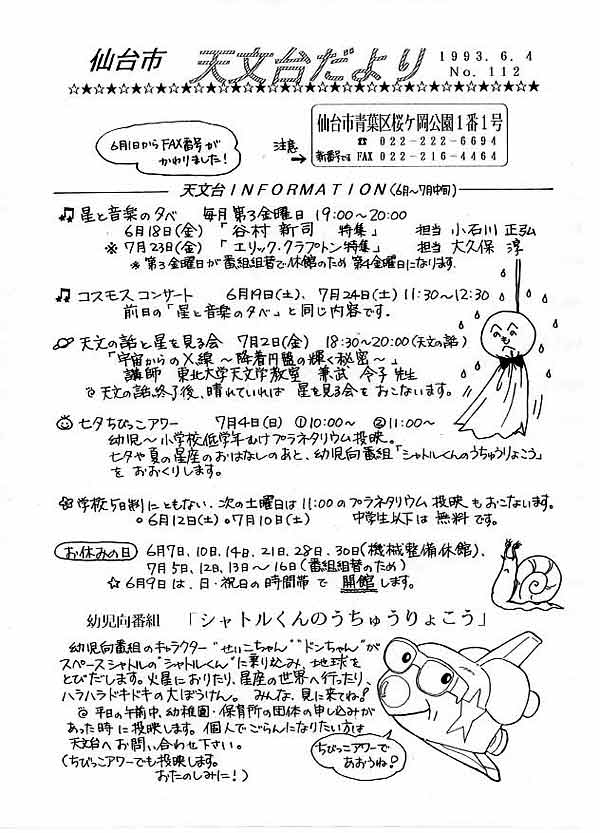 仙台市 天文台だより 1993.6.4
No.112
☆★☆★☆★☆★☆★☆★☆★☆★☆★☆★☆★☆★☆★☆★☆★☆★☆★☆★☆★☆
6月1日から FAX番号が
かわりました!
注意
→
仙台市青葉区桜ケ岡公園1番1号
☎ 022-222-6694
新番号です FAX 022-216-4464
天文台INFORMATION(6月〜7月中旬)
♫ 星と音楽の夕べ 毎月第3金曜日 19:00〜20:00
6月18日(金) 「谷村新司 特集」 担当 小石川 正弘
※7月23日(金) 「エリック・クラプトン特集」 担当 大久保 淳
※第3金曜日が番組組替で休館のため 第4金曜日になります.
♫ コスモスコンサート 6月19日(土)、7月24日(土) 11:30〜12:30
前日の「星と音楽の夕べ」と同じ内容です.
天文の話と星を見る会 7月2日(金) 18:30〜20:00(天文の話)
「宇宙からのX線 〜降着円盤の輝く秘密〜」
講師 東北大学天文学教室 兼武 令子 先生
◎天文の話終了後、晴れていれば 星を見る会を おこないます。
七夕ちびっこアワー 7月4日(日) ①10:00〜 ②11:00〜
幼児〜小学校低学年むけプラネタリウム投映。
七夕や夏の星座のおはなしのあと、幼児向番組「シャトルくんのうちゅうりょこう」
を おおくりします。
学校5日制にともない、次の土曜日は11:00のプラネタリウム投映もおこないます。
○6月12日(土) ○7月10日(土) 中学生以下は無料です。
お休みの日 6月7日、10日、14日、21日、28日、30日(機械整備休館)、
7月5日、12日、13日〜16日(番組組替のため)
☆6月9日は、日・祝日の時間帯で 開館します。
幼児向番組 「シャトルくんのうちゅうりょこう」
幼児向番組のキャラクター"せいこちゃん""ドンちゃん"が
スペースシャトルの"シャトルくん"に乗り込み、地球を
とびだします。火星におりたり、星座の世界へ行ったり、
ハラハラドキドキの大ぼうけん。 みんな、見に来てね!
◎平日の午前中、幼稚園・保育所の団体の申し込みが
あった時に投映します。個人でごらんになりたい方は
天文台へお問い合わせ下さい。
(ちびっこアワーでも投映します。
おたのしみに!)
ちびっこアワーで
あおうね?